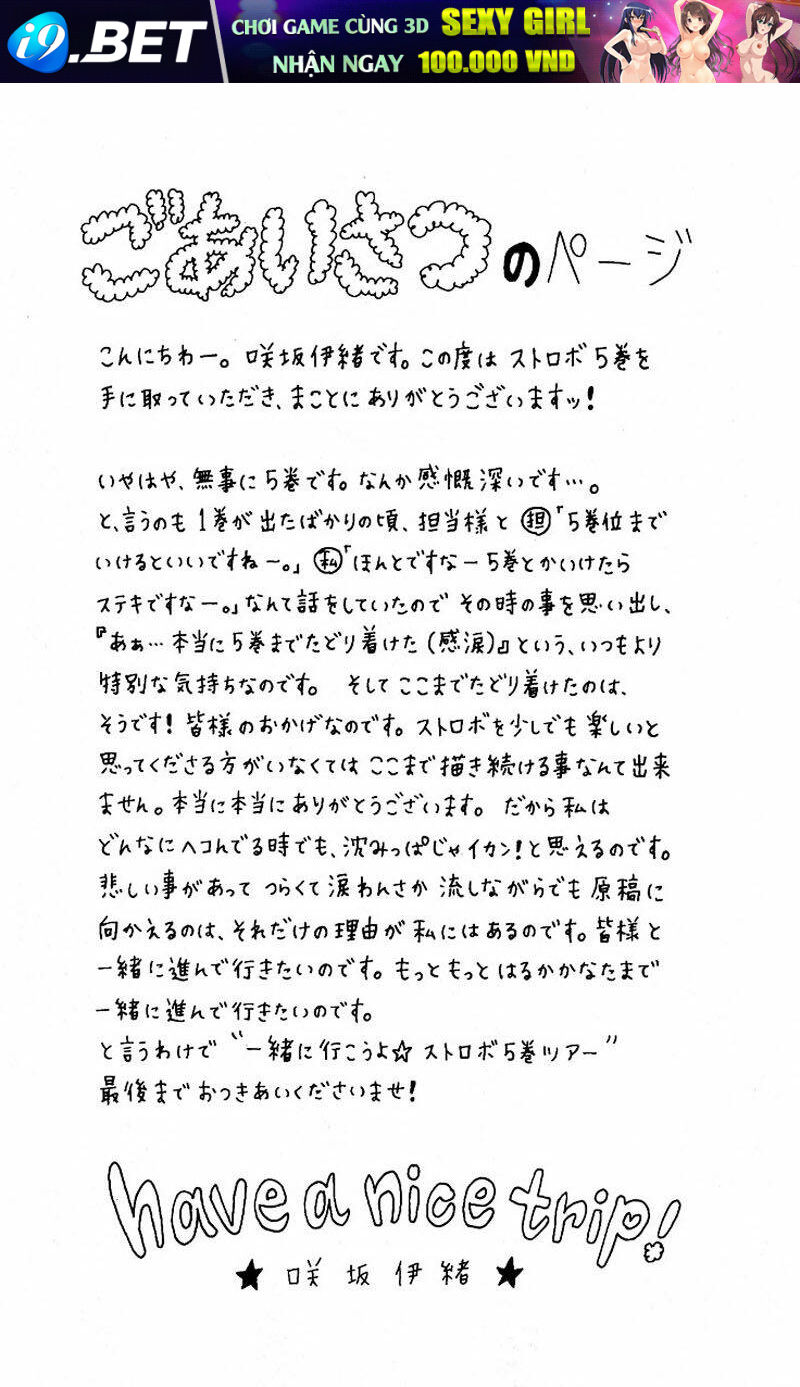 i9.BET
CHƠI GAME CÙNG 3D SEXY GIRL
NHẬN NGAY 100.000 VND
ごあいさつのページ
こんにちわー。咲坂伊緒です。この度は ストロボ5巻を
手に取っていただき、まことに ありがとうございますッ!
いやはや、無事に5巻です。なんか感慨深いです…。
と、言うのも 1巻が出たばかりの頃、担当様と 担「5巻位まで
いけるといいですねー。」 私「ほんとですなー5巻とかいけたら
ステキですなー。」なんて話をしていたので その時の事を思い出し、
『あぁ…本当に5巻までたどり着けた(感涙)』という、いつもより
特別な気持ちなのです。 そして ここまでたどり着けたのは、
そうです! 皆様のおかげなのです。ストロボを少しでも楽しいと
思ってくださる方がいなくては ここまで描き続ける事なんて出来
ません。本当に本当にありがとうございます。 だから私は
どんなにヘコんでる時でも、沈みっぱじゃイカン!と思えるのです。
悲しい事があって つらくて涙わんさか 流しながらでも 原稿に
向かえるのは、それだけの理由が 私にはあるのです。皆様と
一緒に進んで行きたいのです。もっともっと はるかかなたまで
一緒に進んで行きたいのです。
と言うわけで “一緒に行こうよ☆ストロボ5巻ツアー”
最後まで おつきあいくださいませ!
have a nice trip!
★ 咲坂伊緒 ★